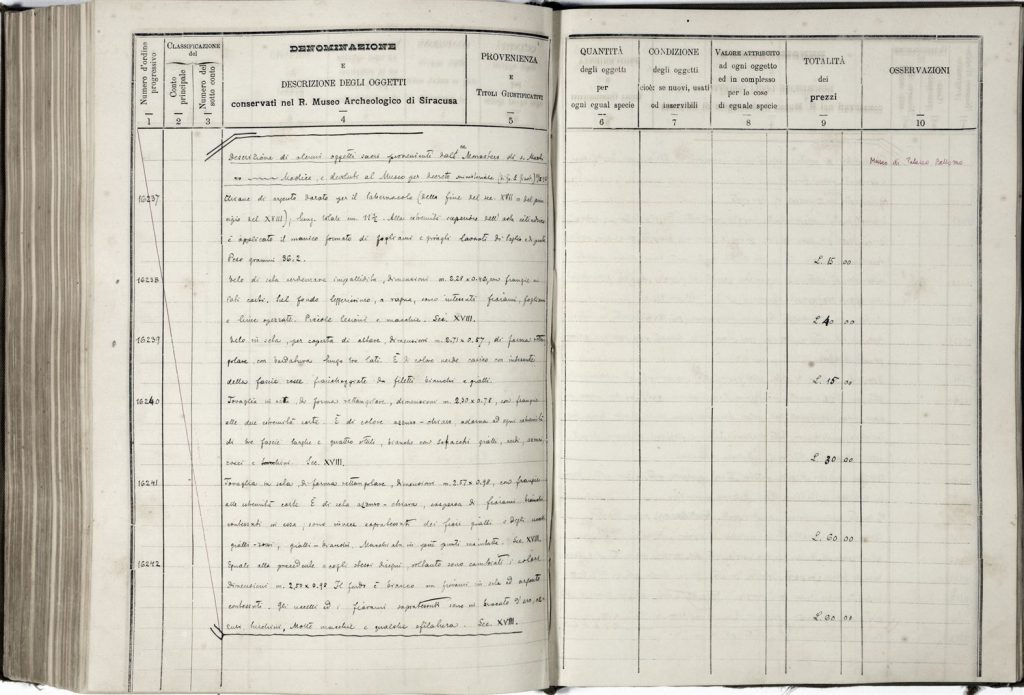 Numero d'ordine progressivo
CLASSIFICAZIONE del
Conto principale
Numero del sotto conto
DENOMINAZIONE
E
DESCRIZIONE DEGLI OGGETTI
conservati nel R. Museo Archeologico di Siracusa
PROVENIENZA
E
TITOLI GIUSTIFICATIVI
1 2 3 4 5
Descrizione di alcuni oggetti sacri provenienti dall' Monastero di S.
Modica, e devoluti al Museo per decreto ministeriale
16237 Chiave di argento dorato per il tabernacolo (della fine del sec. XVII o del prin
cipio del XVIII); lung. totale cm. 11 ½. Alla estremità superiore dell'
è applicato il manico formato di fogliami e
Peso grammi 36.2.
16238 Velo di seta verdemare impallidita, dimensioni m. 2.28 x 0.43, con frangie ai
lati corti. Sul fondo leggerissimo, a, sono intessuti fiorami, fogliami
e linee operate. Piccole lesioni e macchie. Sec. XVIII.
16239 Velo in seta, per coperta di altare, dimensioni m. 2.71 x 0.57, di forma rettan
golare con lungo tre lati. È di colore verde carico con
delle fascie rosse fiancheggiate da filetti bianchi e gialli.
16240 Tovaglia in seta di forma rettangolare, dimensioni m. 2.30 x 0.78, con frangie
alle due estremità corte. È di colore azzurro-chiaro, adorna ad ogni estremità
di tre fascie larghe e quattro sottili, bianche con gialli, verdi,
e turchini. Sec. XVIII.
16241 Tovaglia in seta di forma rettangolare, dimensioni m. 2.57 x 0.98, con frangie
alle estremità corte. È di seta azzurro-chiara, cosparsa di fiorami
contessuti in essa; sono invece soprattessuti dei fiori gialli e degli uccelli
gialli-rossi, gialli-bianchi. Macchiata in più punti. Sec. XVIII.
16242 Eguale alla precedente e cogli stessi disegni, soltanto sono cambiati i colori.
Dimensioni m. 2,50 x 0.98 Il fondo è bianco con fiorami in seta ed argento
contessuti. Gli uccelli ed i fiorami soprattessuti sono in broccato d'oro, al-
cuni turchini, Molte macchie e qualche sfilatura. Sec. XVIII.
QUANTITÀ
degli oggetti
per
ogni egual specie
CONDIZIONE
degli oggetti
cioè: se nuovi, usati
od inservibili
VALORE ATTRIBUITO
ad ogni oggetto
ed in complesso
per le cose
di eguale specie
TOTALITÀ
dei
prezzi
OSSERVAZIONI
6 7 8 9 10
Museo di Palazzo Bellomo
L. 15 00
L. 40 00
L. 15 00
L. 30 00
L. 60 00
L. 60 00